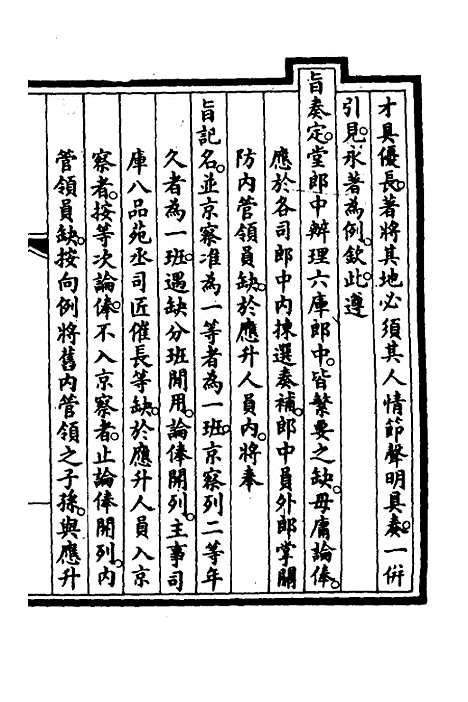 才具優長。著將其地必須其人情節聲明具奏。一併
引見。永著為例。欽此。遵
旨奏定。堂郎中辦理六庫郎中。皆繁要之缺。毋庸論俸。
應於各司郎中內揀選奏補。郎中員外郎掌關
防內管領員缺。於應升人員內。將奉
旨記名。並京察准為一等者為一班。京察列二等年
久者為一班。遇缺分班開用。論俸開列。主事司
庫八品苑丞司匠催長等缺。於應升人員入京
察者。按等次論俸。不入京察者。止論俸開列。內
管領員缺。按向例將舊內管領之子孫。與應升